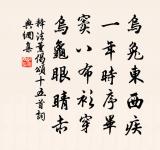 烏兔東西疾
一年時序畢
竇八布衫穿
烏龜眼睛赤
釋法薰偈頌十五首詞
典網集